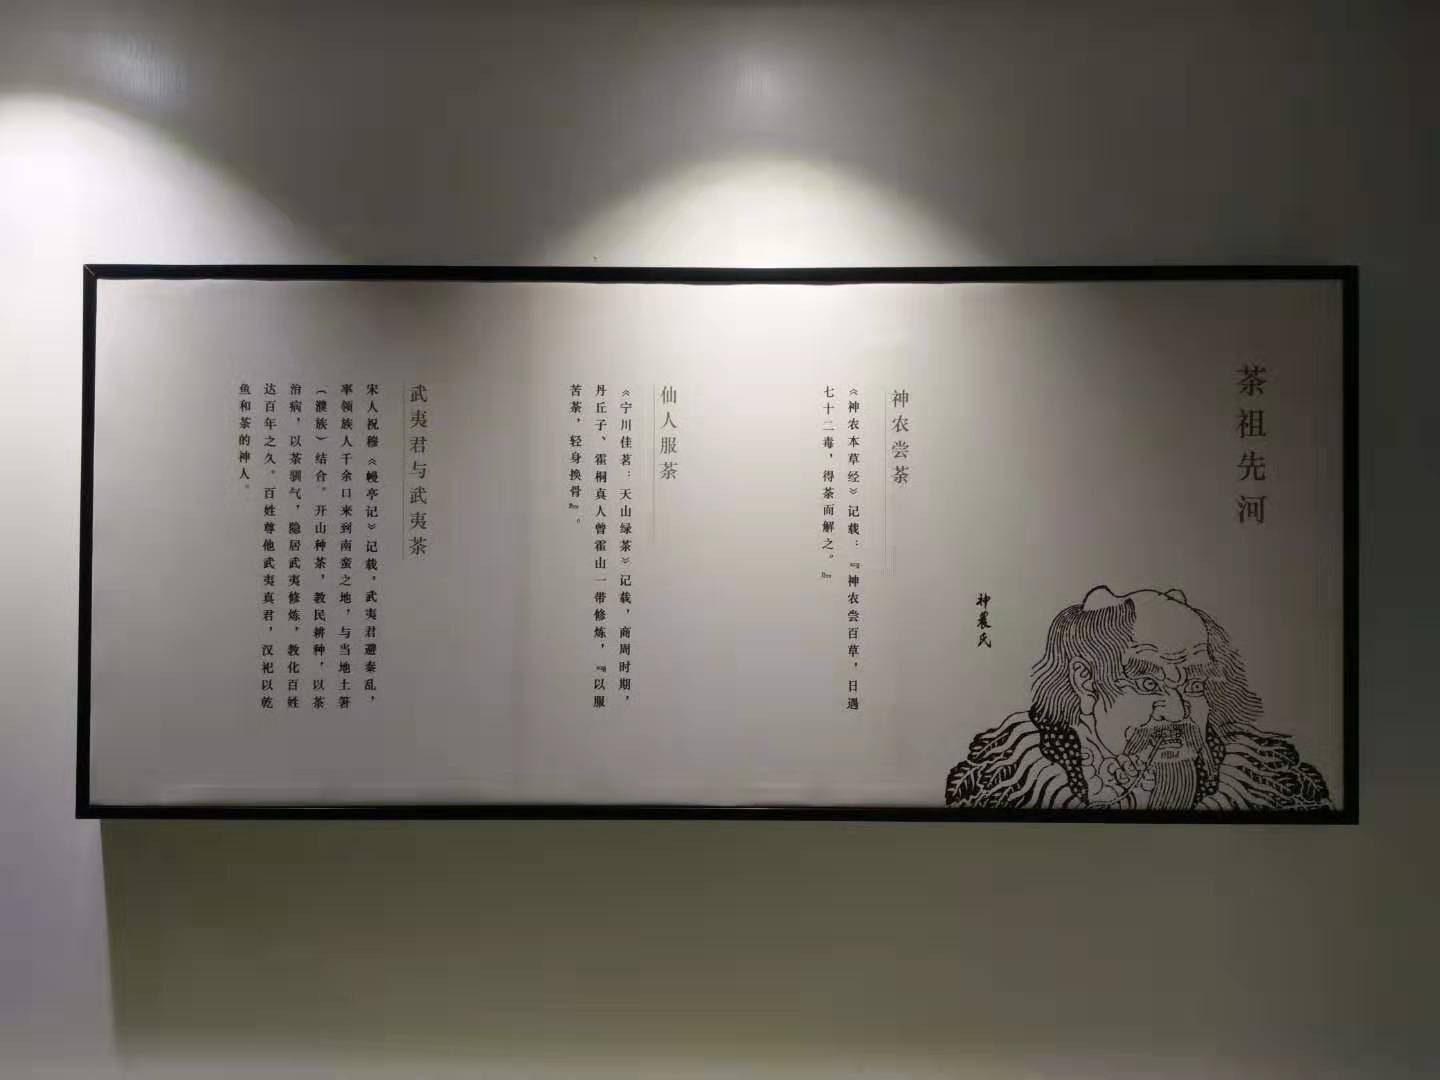 茶祖先河
神农氏
神农尝茶
《神农本草经》记载：『神农尝百草，日遇
七十二毒，得茶而解之。』
仙人服茶
《宁川佳茗：天山绿茶》记载，商周时期，
丹丘子、霍桐真人曾霍山一带修炼，『以服
苦茶，轻身换骨』。
武夷君与武夷茶
宋人祝穆《幔亭记》记载，武夷君避秦乱，
率领族人千余口来到南蛮之地，与当地土著
（濮族）结合。开山种茶，教民耕种，以茶
治病，以茶驯气，隐居武夷修炼，教化百姓
达百年之久。百姓尊他武夷真君，汉祀以乾
鱼和茶的神人。